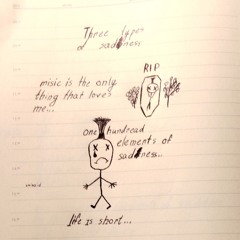 Three types
of sadness
RIP
misic is the only
thing that loves
me...
one hundread
elements of
sadness..
life is short...